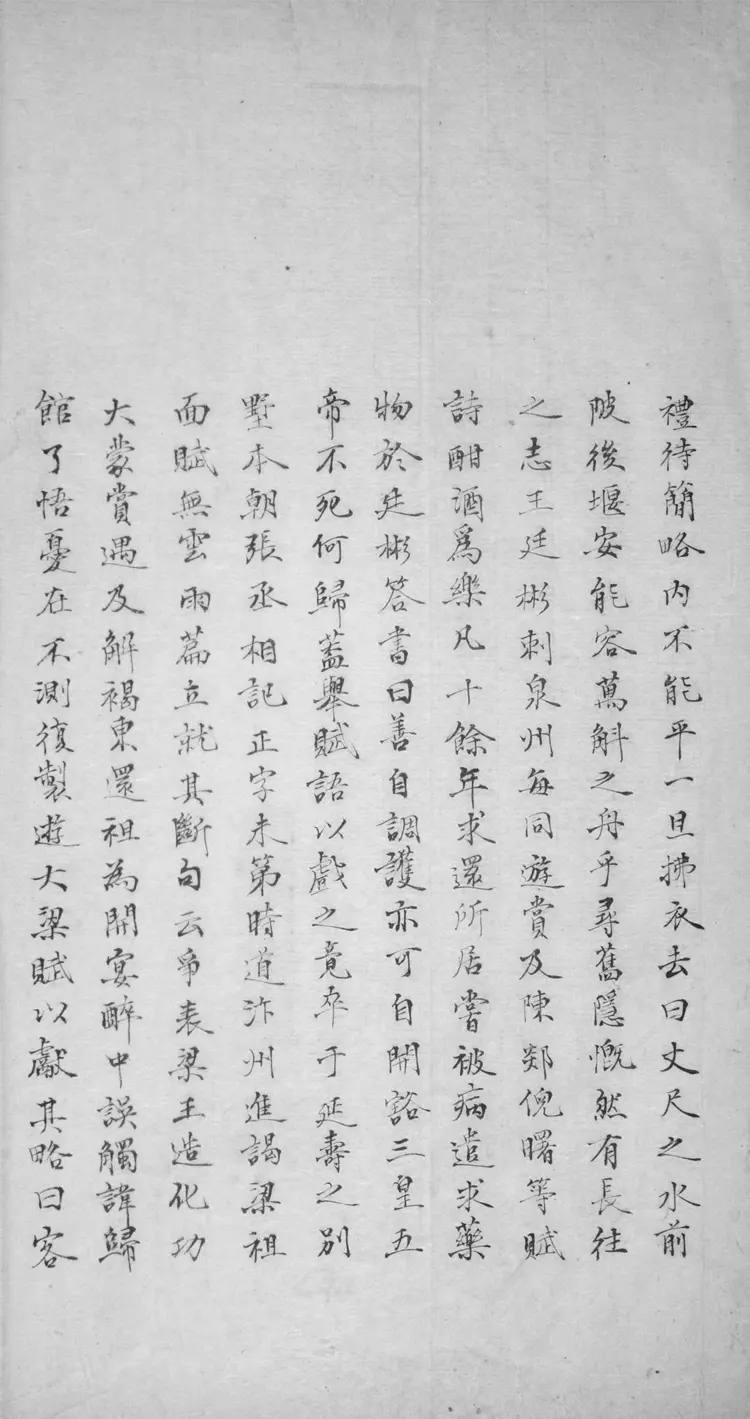 禮待簡略内不能平一旦拂衣去曰丈尺之水前
陂後堰安能容萬斛之舟乎尋舊隱慨然有長往
之志王廷彬刺泉州每同遊賞及陳郯倪曙等賦
詩酣酒爲樂凡十餘年求還所居嘗被病遣求藥
物於廷彬答書曰善自調護亦可自開豁三皇五
帝不死何歸蓋舉賦語以戲之竟卒于延壽之別
墅本朝張丞相記正字未第時道汴州進謁梁祖
面賦無雲雨篇立就其斷句云爭表梁王造化功
大蒙賞遇及解褐東還祖為開宴醉中誤觸諱歸
館了悟憂在不測復製遊大梁賦以獻其略曰客